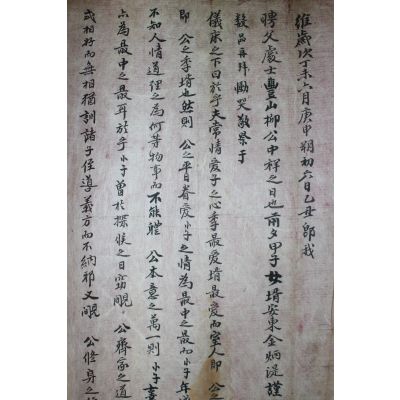 維歲次丁未六月庚申朔初六日乙丑卽我
聘父處士豊山柳公中祥之日也前夕甲子女壻安東金炳湜謹
数品再拜慟哭敬祭于
儀床之下曰於乎夫常情愛子之心季最愛壻最愛而室人卽 公之
卽 公之季壻也然則 公之平日眷愛小子之情爲最中之最而小子年
不知人情道理之爲何等物事而不能體 公本意之萬一則小子
亦爲最中之最耳於乎小子曾於 候之日竊覸 公齊家之道
或相好而無相猶訓諸子侄導義方而不納邪又覸 公修身之